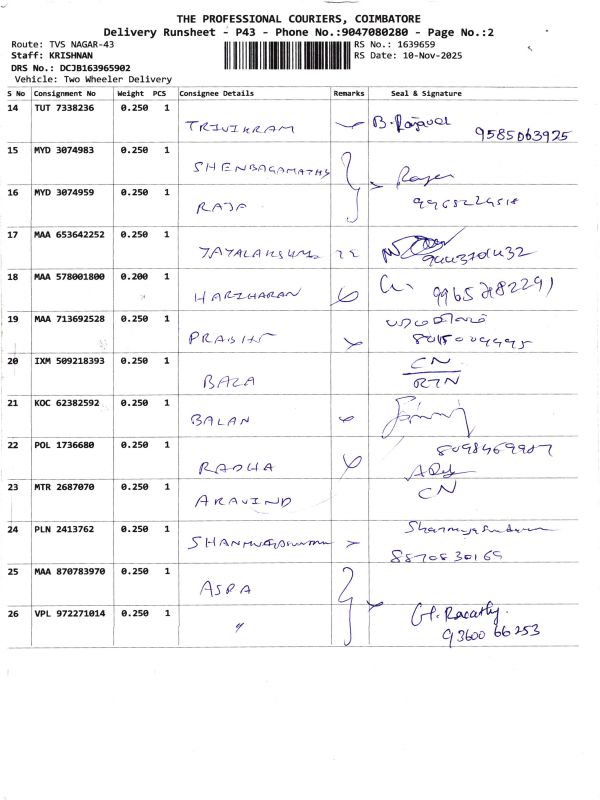 THE PROFESSIONAL COURIERS, COIMBATORE
Delivery Runsheet - P43 - Phone No.:9047080280 - Page No.:2
Route: TVS NAGAR-43
Staff: KRISHNAN
DRS No.: DCJB163965902
Vehicle: Two Wheeler Delivery
RS No.: 1639659
RS Date: 10-Nov-2025
S No Consignment No Weight PCS Consignee Details Remarks Seal & Signature
14 TUT 7338236 0.250 1 TRIVIKRAM B. Rajavel 9585063925
15 MYD 3074983 0.250 1 SHENBAGAMATHY
16 MYD 3074959 0.250 1 RAJA
17 MAA 653642252 0.250 1
18 MAA 578001800 0.200 1 HARIHARAN
19 MAA 713692528 0.250 1
20 IXM 509218393 0.250 1 BALA CN
RTN
21 KOC 62382592 0.250 1 BALAN
22 POL 1736680 0.250 1 RADHA
23 MTR 2687070 0.250 1 ARAVIND CN
24 PLN 2413762 0.250 1
8870830165
25 MAA 870783970 0.250 1 ASPA
26 VPL 972271014 0.250 1 "
93600 66253